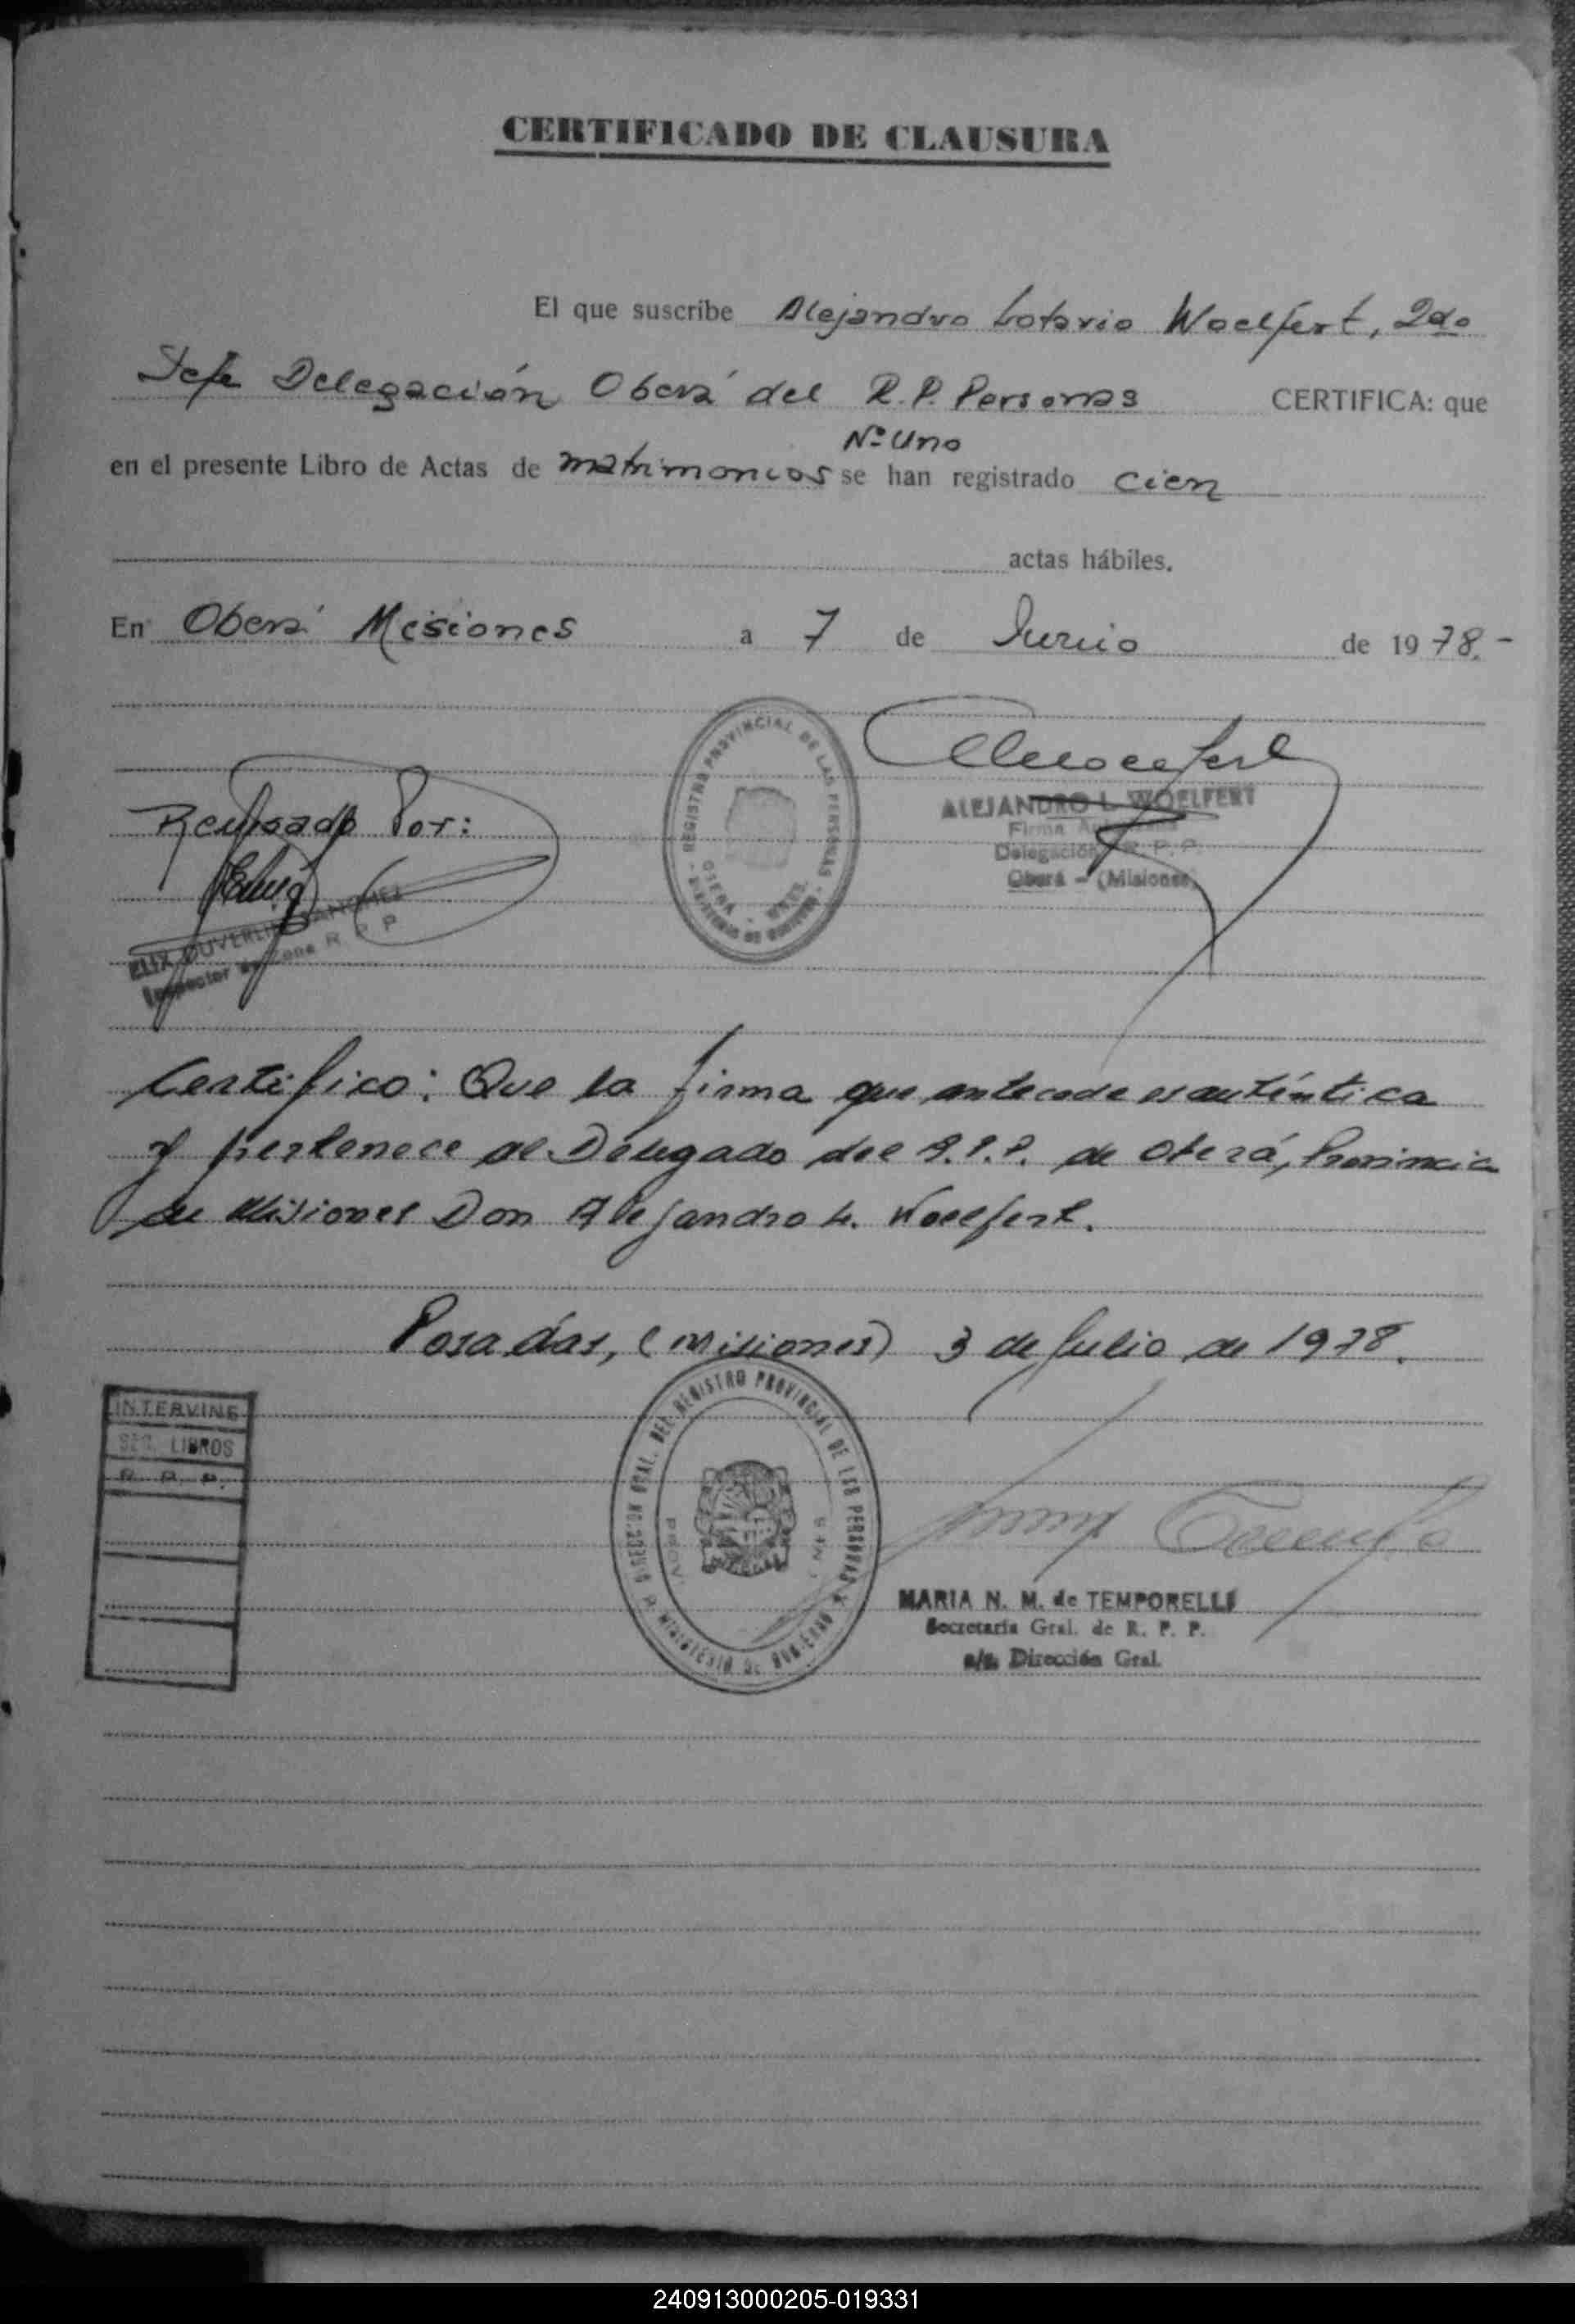 CERTIFICADO DE CLAUSURA
El que suscribe Alejandro Lotario Woelfert, 2do
Jefe Delegación Oberá del R.P. Personas CERTIFICA: que
Nº Uno
en el presente Libro de Actas de matrimonios se han registrado cien
actas hábiles.
En Oberá Misiones a 7 de Junio de 1978.-
REGISTRO PROVINCIAL DE LAS PERSONAS
OBERA - MNES.
MINISTERIO DE GOBIERNO
ALEJANDRO L. WOELFERT
Firma
Delegación R. P. P.
Oberá - (Misiones)
Revisado Por:
Inspector de Zona R P P
Certifico: Que la firma que antecede es auténtica
y pertenece al Delegado del R.P.P. de Oberá, Provincia
de Misiones Don Alejandro L. Woelfert.
Posadas, (Misiones) 3 de Julio de 1978.
INTERVINE
SEC. LIBROS
R. P. P.
DIRECCION GRAL. DEL REGISTRO PROVINCIAL DE LAS PERSONAS
MINISTERIO DE GOBIERNO
MARIA N. M. de TEMPORELLI
Secretaria Gral. de R. P. P.
a/c. Dirección Gral.
240913000205-019331